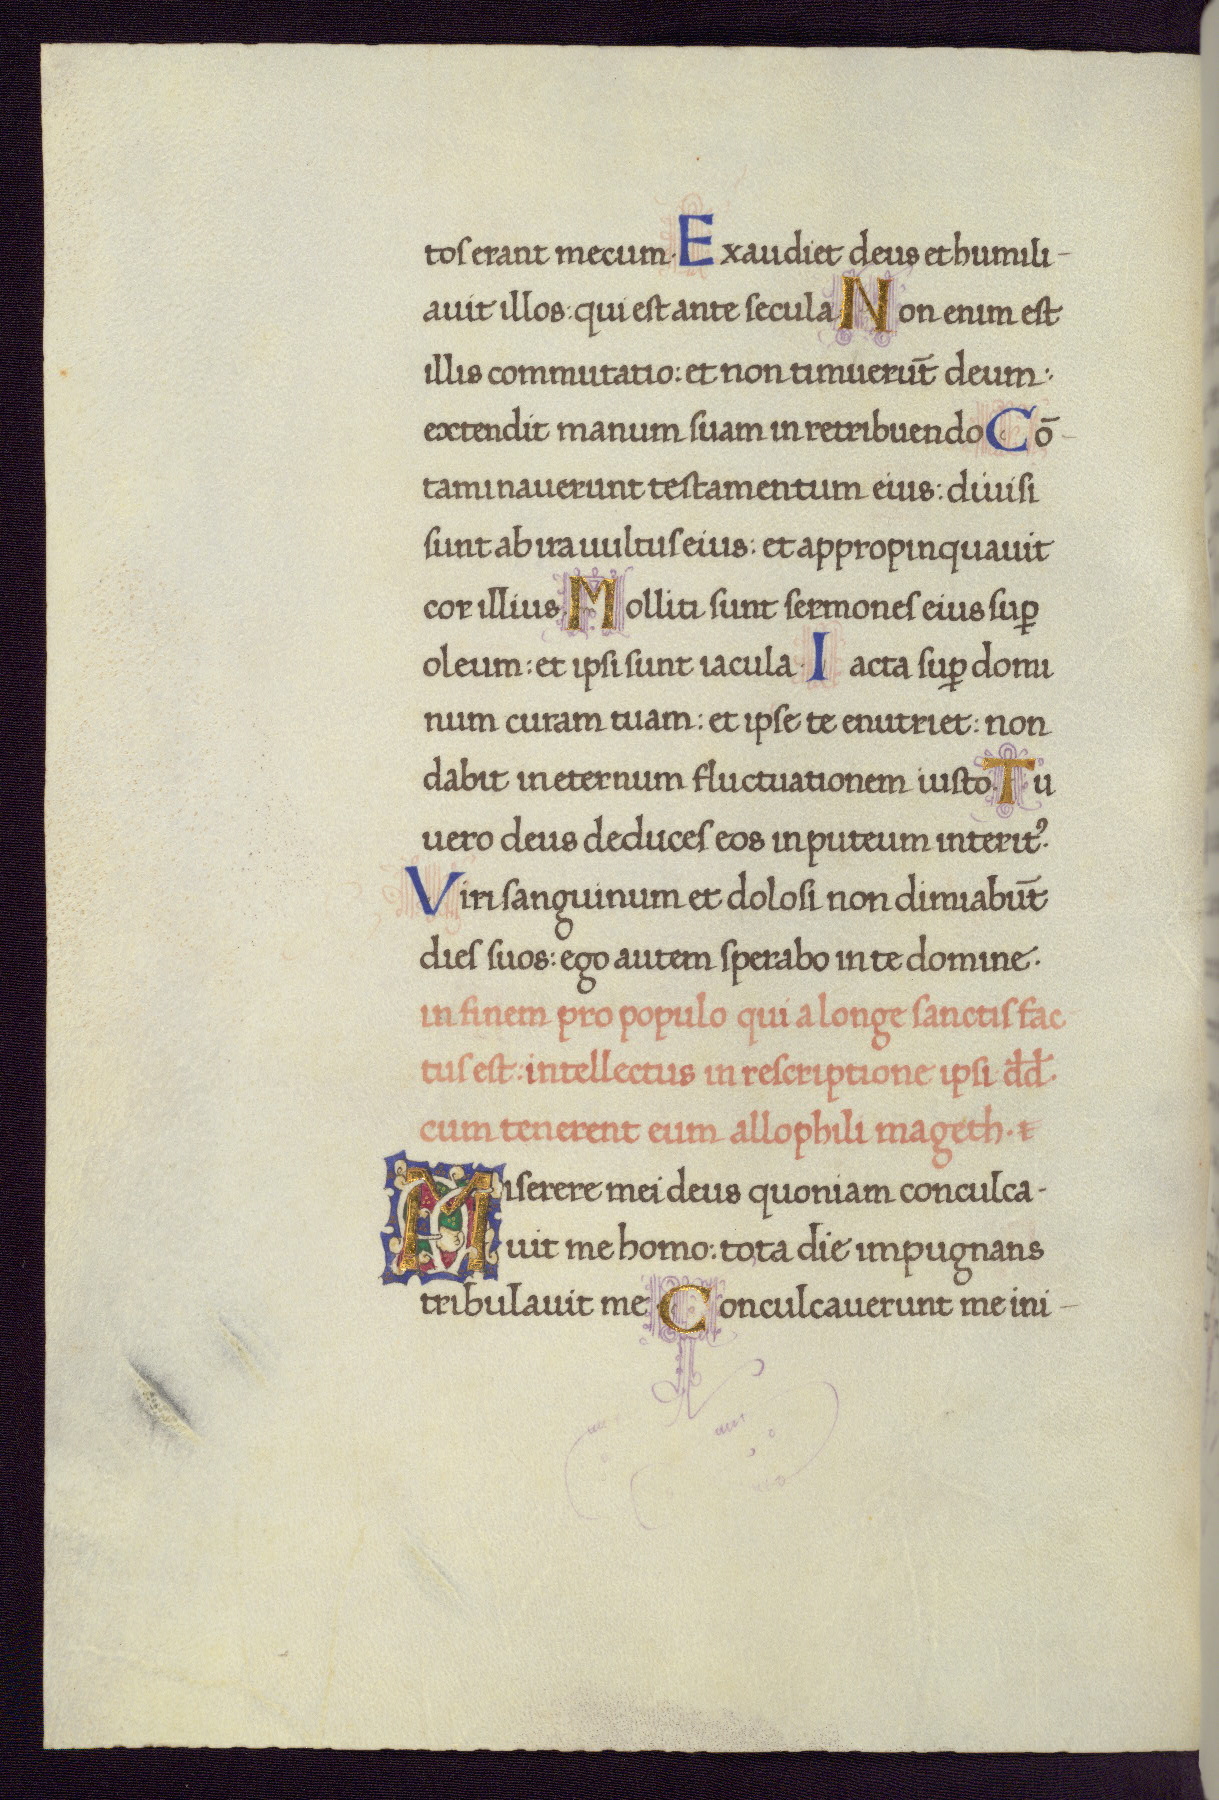 tos erant mecum. Exaudiet deus et humili-
avit illos: qui est ante secula Non enim est
illis commutatio: et non timuerūt deum:
extendit manum suam in retribuendo Cō-
taminauerunt testamentum eius: diuisi
sunt ab ira uultus eius: et appropinquauit
cor illius Molliti sunt sermones eius suꝑ
oleum: et ipsi sunt iacula. Iacta suꝑ domi
num curam tuam: et ipse te enutriet: non
dabit in eternum fluctuationem iusto Tu
uero deus deduces eos in puteum interitꝰ.
Viri sanguinum et dolosi non dimiabūt
dies suos: ego autem sperabo in te domine.
in finem pro populo qui a longe sanctis fac
tus est: intellectus in rescriptione ipsi dd̄.
cum tenerent eum allophili mageth.
Miserere mei deus quoniam conculca-
uit me homo: tota die impugnans
tribulauit me Conculcauerunt me ini-